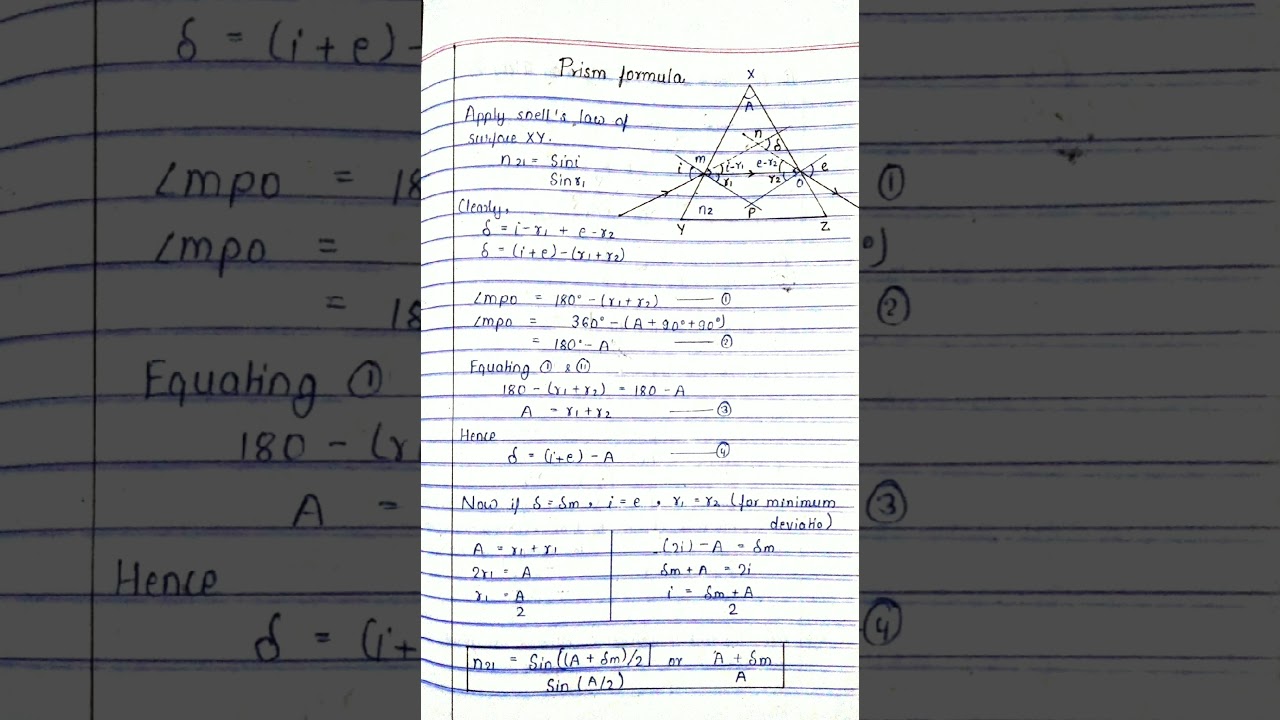 Prism formula
X
A
Apply snell's law of
surface XY.
n21 = Sini
Sinr1
n
δ
m
i
i-r1
r1
e-r2
r2
e
O
n2
P
Y
Z
Clearly,
δ = i-r1 + e-r2
δ = (i+e)-(r1+r2)
∠mpo = 180°-(r1+r2) —— ①
∠mpo = 360°-(A+90°+90°)
= 180°-A —— ②
Equating ① & ⑪
180-(r1+r2) = 180-A
A = r1+r2 —— ③
Hence
δ = (i+e)-A —— ④
Now if δ=δm, i=e, r1=r2 (for minimum
deviatio)
A = r1+r1
2r1 = A
r1 = A
2
(2i)-A = δm
δm+A = 2i
i = δm+A
2
n21 = Sin[(A+δm)/2] or A+δm
Sin(A/2) A
δ = (i+e)-
∠mpo = 18
①
∠mpo =
°)
= 18
②
Equating ①
180-(r
A =
③
ence
δ = (i+
④